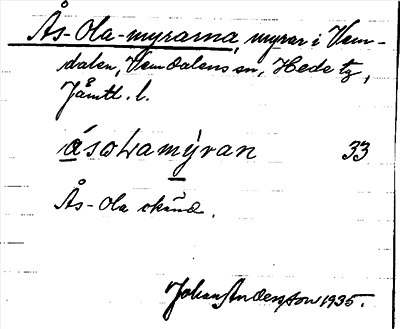 Ås-Ola-myrarna, myrar i Vem-
dalen, Vemdalens sn, Hede tg,
Jämtl. l.
åsωLamýran 33
Ås-Ola okänd.
Johan Andersson 1935.